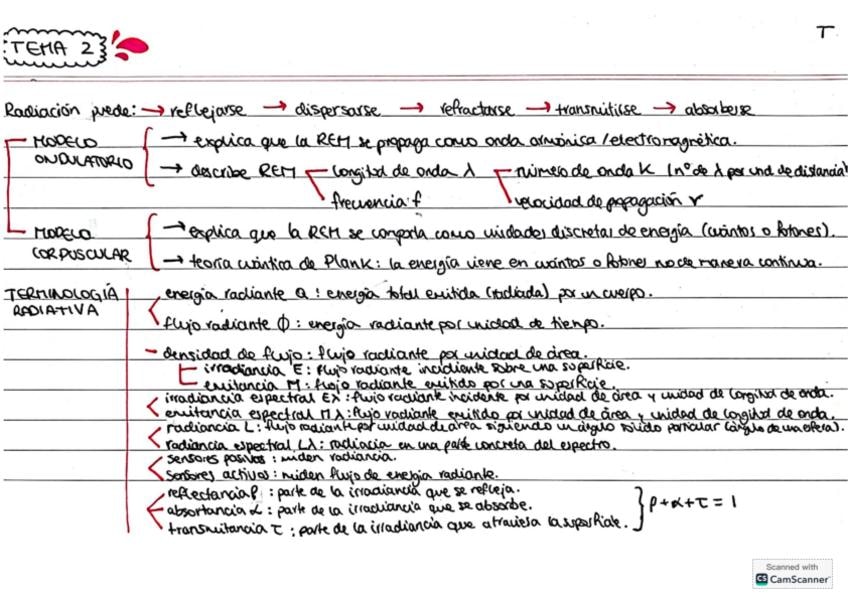 T
TEMA 2
Radiación puede: → reflejarse → dispersarse → refractarse → transmitirse → absorberse
MODELO ONDULATORIO
→ explica que la REM se propaga como onda armónica/electromagnética.
→ describe REM longitud de onda λ número de onda K (nº de λ por und de distancia)
frecuencia f velocidad de propagación v
MODELO CORPUSCULAR
→ explica que la REM se comporta como unidades discretas de energía (cuántos o fotones).
→ teoría cuántica de Plank: la energía viene en cuántos o fotones no de manera continua.
TERMINOLOGÍA RADIATIVA
energía radiante Q: energía total emitida (radiada) por un cuerpo.
flujo radiante Φ: energía radiante por unidad de tiempo.
- densidad de flujo: flujo radiante por unidad de área.
irradiancia E: flujo radiante incidente sobre una superficie.
emitancia M: flujo radiante emitido por una superficie.
irradiancia espectral Eλ: flujo radiante incidente por unidad de área y unidad de longitud de onda.
emitancia espectral Mλ: flujo radiante emitido por unidad de área y unidad de longitud de onda.
radiancia L: flujo radiante por unidad de área siguiendo un ángulo sólido particular (ángulo de una esfera).
radiancia espectral Lλ: radiacia en una parte concreta del espectro.
sensores pasivos: miden radiancia.
sensores activos: miden flujo de energía radiante.
reflectancia ρ: parte de la irradiancia que se refleja.
absortancia α: parte de la irradiancia que se absorbe.
transmitancia τ: parte de la irradiancia que atraviesa la superficie.
ρ+α+τ=1
Scanned with
CS CamScanner